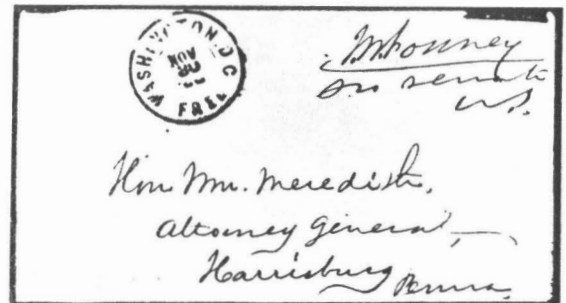 WASHINGTON D.C.
FREE
J.W. Forney
Sec Senate
U.S.
Hon Wm. Meredith,
Attorney General,
Harrisburg Penna